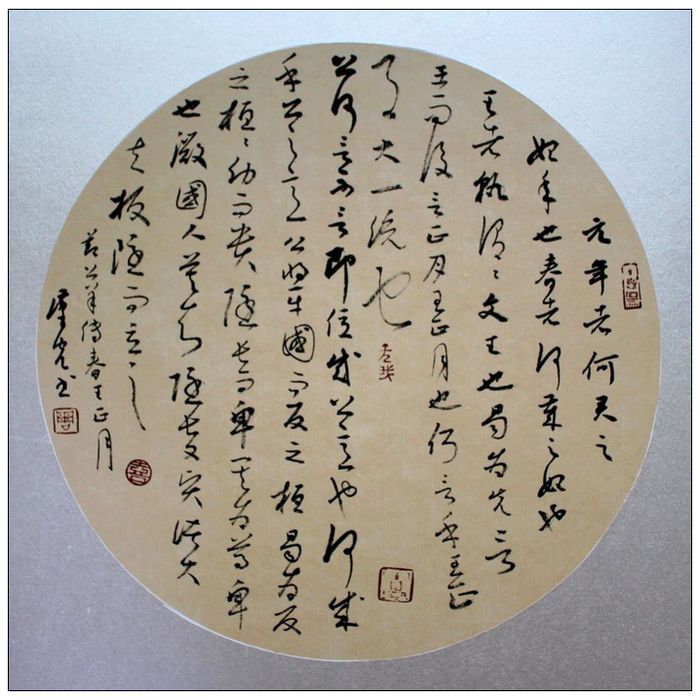 元年者何君之
始年也春者何歲之始也
王者孰謂謂文王也曷为先言
王而後言正月王正月也何言乎王正
月大一統也
公何以不言即位成公意也何成
乎公之意公将平國而反之桓曷为反
之桓桓幼而貴隱長而卑其为尊卑
也微國人莫知隱長又賢諸大
夫扳隱而立之
节公羊傳春王正月
书